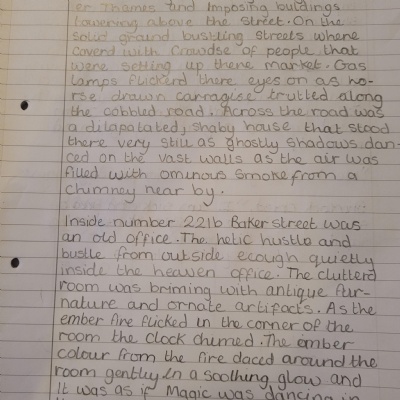 er Thames and Imposing buildings
towering above the street. On the
solid ground bustling streets where
coverd with crowdse of people that
were setting up there market. Gas
lamps flickerd there eyes on as ho-
rse drawn carragise trutled along
the cobbled road. Across the road was
a dilapatated, shaby house that stood
there very still as ghostly shadows dan-
ced on the vast walls as the air was
filled with ominous smoke from a
chimney near by.
Inside number 221b Baker street was
an old office. The hetic hustle and
bustle from outside ecough quietly
inside the heaven office. The clutterd
room was briming with antique fur-
nature and ornate artifacts. As the
ember fire flicked in the corner of the
room the clock chumed. The ember
colour from the fire daced around the
room gently in a soothing glow and
It was as if Magic was dancing in